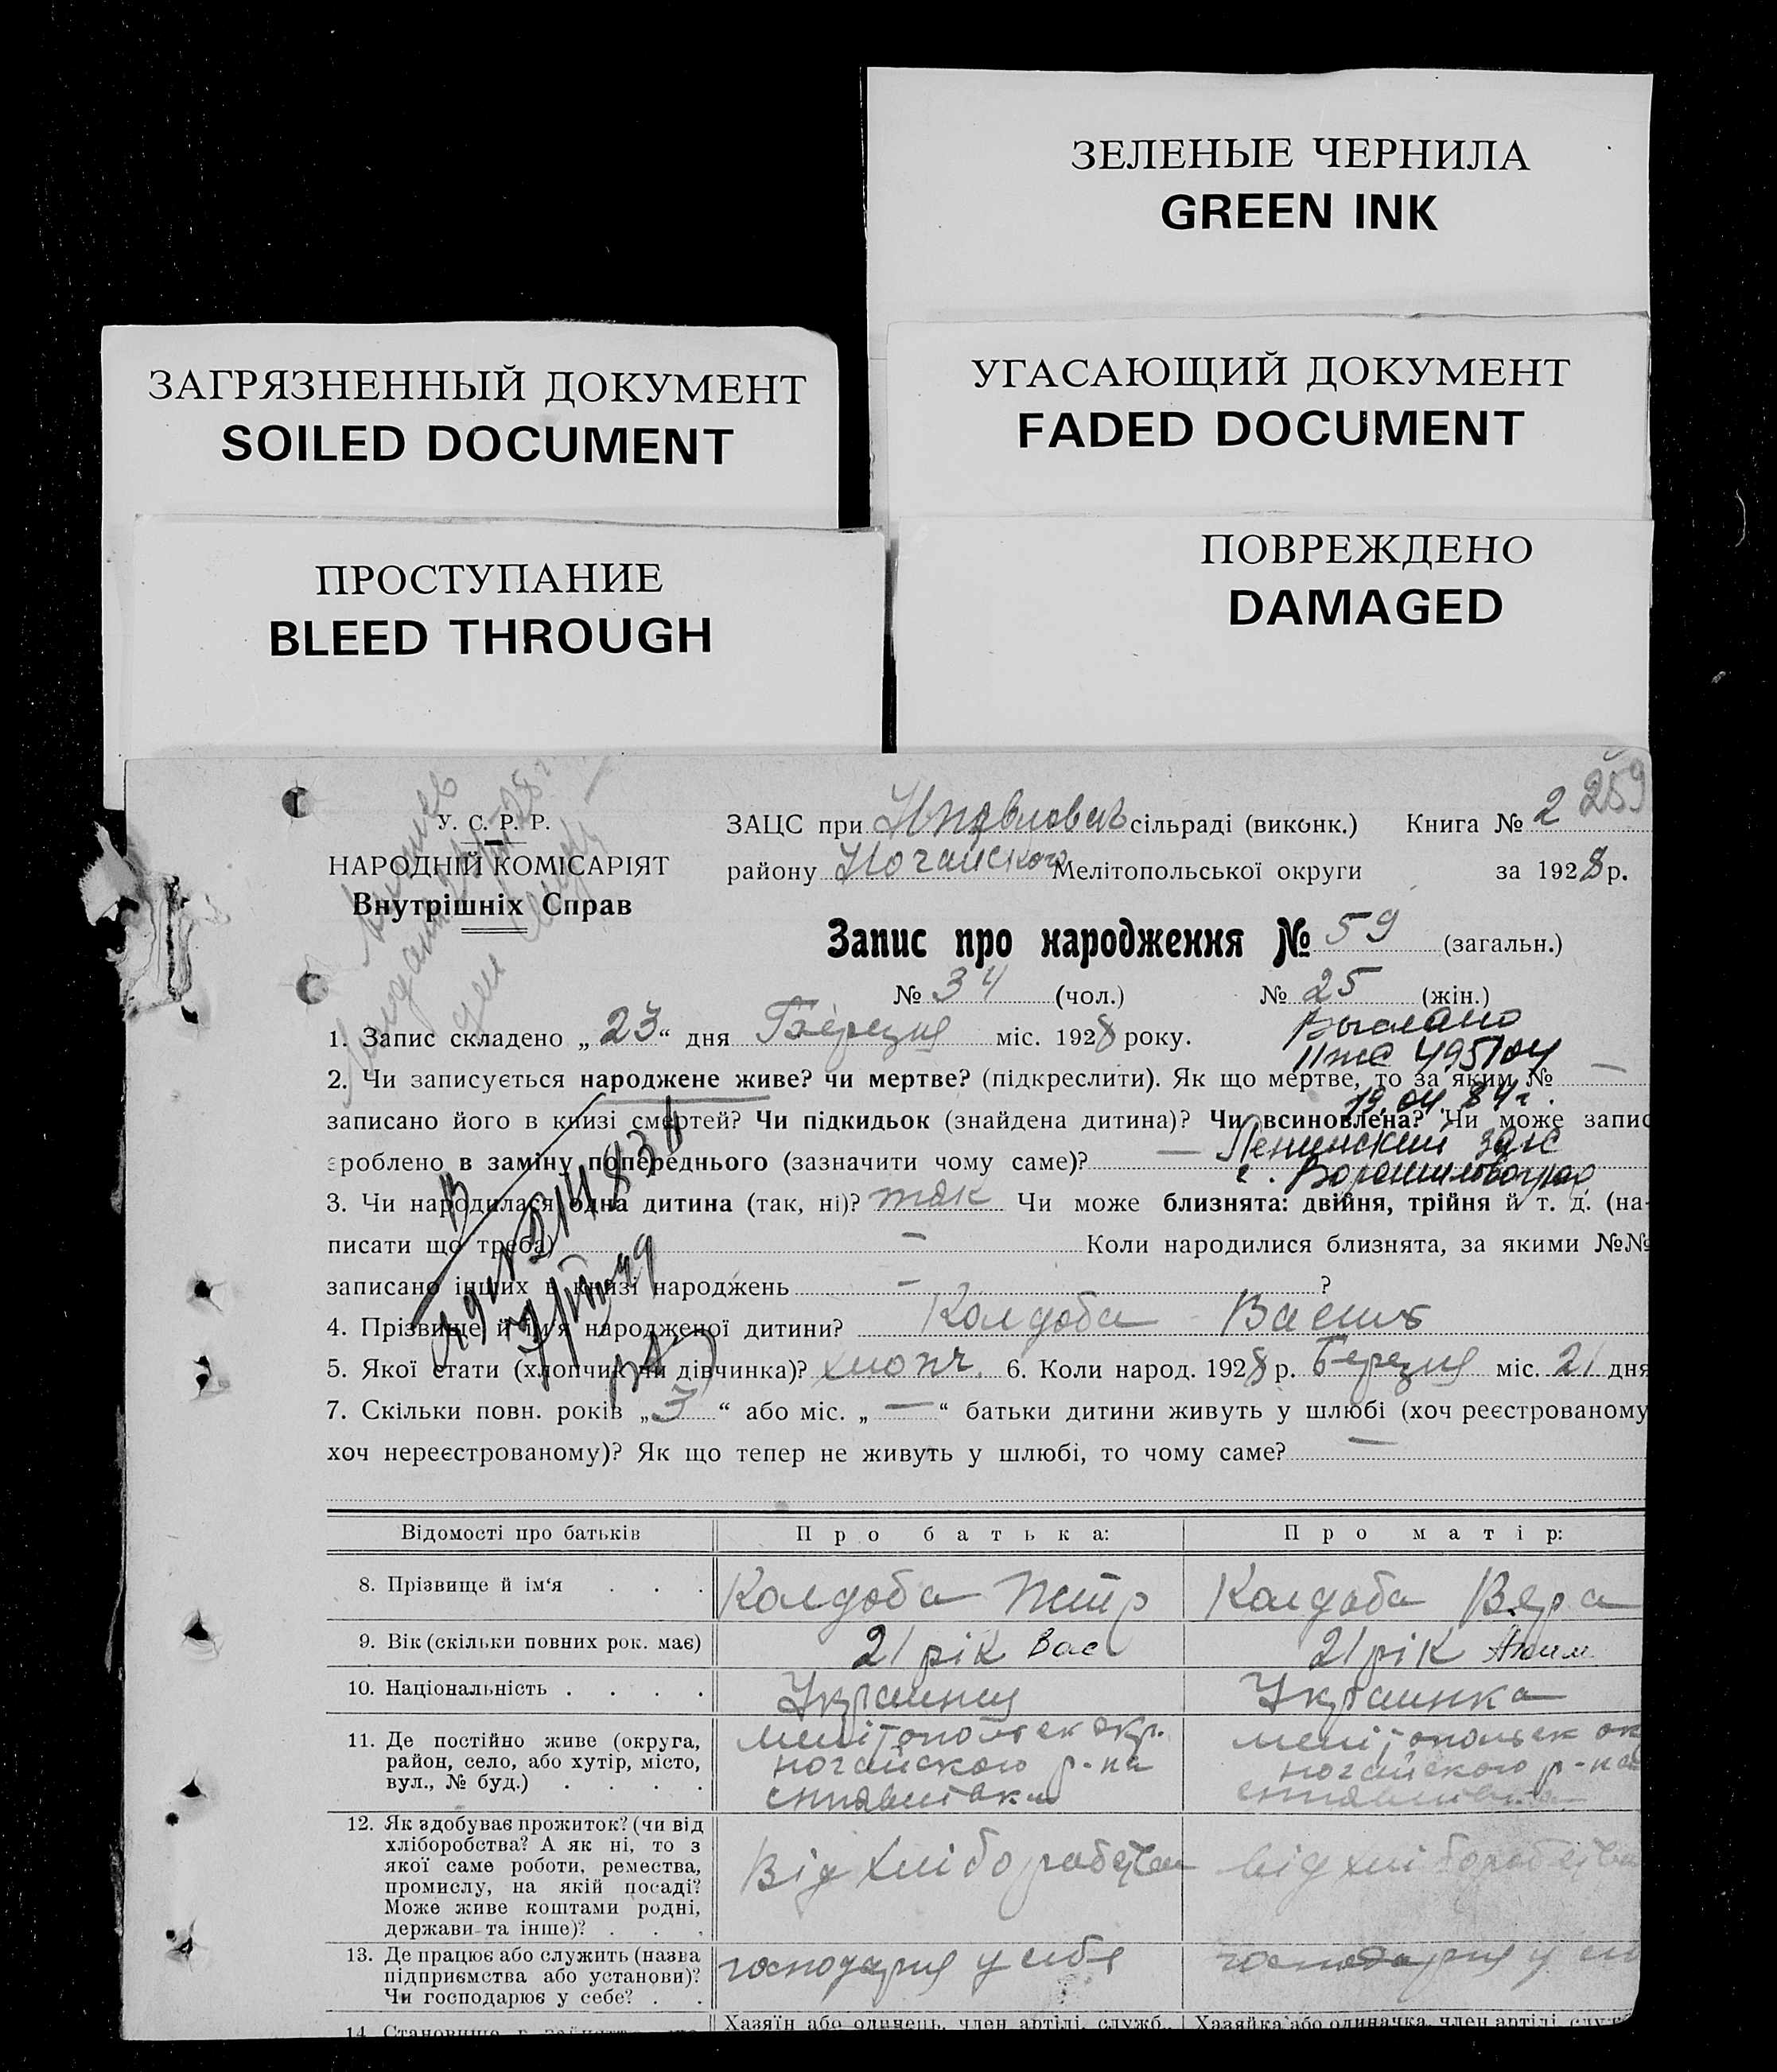 ЗЕЛЕНЫЕ ЧЕРНИЛА
GREEN INK
ЗАГРЯЗНЕННЫЙ ДОКУМЕНТ
SOILED DOCUMENT
УГАСАЮЩИЙ ДОКУМЕНТ
FADED DOCUMENT
ПРОСТУПАНИЕ
BLEED THROUGH
ПОВРЕЖДЕНО
DAMAGED
У. С. Р. Р.
НАРОДНІЙ КОМІСАРІЯТ
Внутрішніх Справ
ЗАЦС при сільраді (виконк.) Книга № 2 259
району Ногайского Мелітопольської округи за 1928 р.
Запис про народження № 59 (загальн.)
№ 34 (чол.) № 25 (жін.)
Выслано
495704
19.04.84 г.
Ленинский загс
г. Ворошиловград
1. Запис складено „23“ дня Березня міс. 1928 року.
2. Чи записується народжене живе? чи мертве? (підкреслити). Як що мертве, то за яким № —
записано його в книзі смертей? Чи підкидьок (знайдена дитина)? Чи всиновлена? Чи може запис
зроблено в заміну попереднього (зазначити чому саме)? —
3. Чи народилася одна дитина (так, ні)? так Чи може близнята: двійня, трійня й т. д. (на-
писати що треба) — Коли народилися близнята, за якими №№
записано інших в книзі народжень — ?
4. Прізвище й ім'я народженої дитини? Колдоба Василь
5. Якої стати (хлопчик чи дівчинка)? хлопч. 6. Коли народ. 1928 р. Березня міс. 21 дня
7. Скільки повн. років „3“ або міс. „—“ батьки дитини живуть у шлюбі (хоч реєстрованому
хоч нереєстрованому)? Як що тепер не живуть у шлюбі, то чому саме? —
Відомості про батьків Про батька: Про матір:
8. Прізвище й ім‘я . . . Колдоба Петр Колдоба Вера
9. Вік (скільки повних рок. має) 21 рік Вас 21 рік Аким
10. Національність . . . . Украинец Украинка
11. Де постійно живе (округа,
район, село, або хутір, місто,
вул., № буд.) . . . .
мелітопольск окр.
ногайского р-на
мелітопольск ок
ногайского р-на
12. Як здобуває прожиток? (чи від
хліборобства? А як ні, то з
якої саме роботи, ремества,
промислу, на якій посаді?
Може живе коштами родні,
держави та інше)? . . .
Від хліборобства
від хліборобства
13. Де працює або служить (назва
підприємства або установи)?
Чи господарює у себе? . .
господарня у себя
господарня у
14. Становище в
Хазяїн або одинець, член артілі, служб.,
Хазяйка або одиначка, член артілі, служб